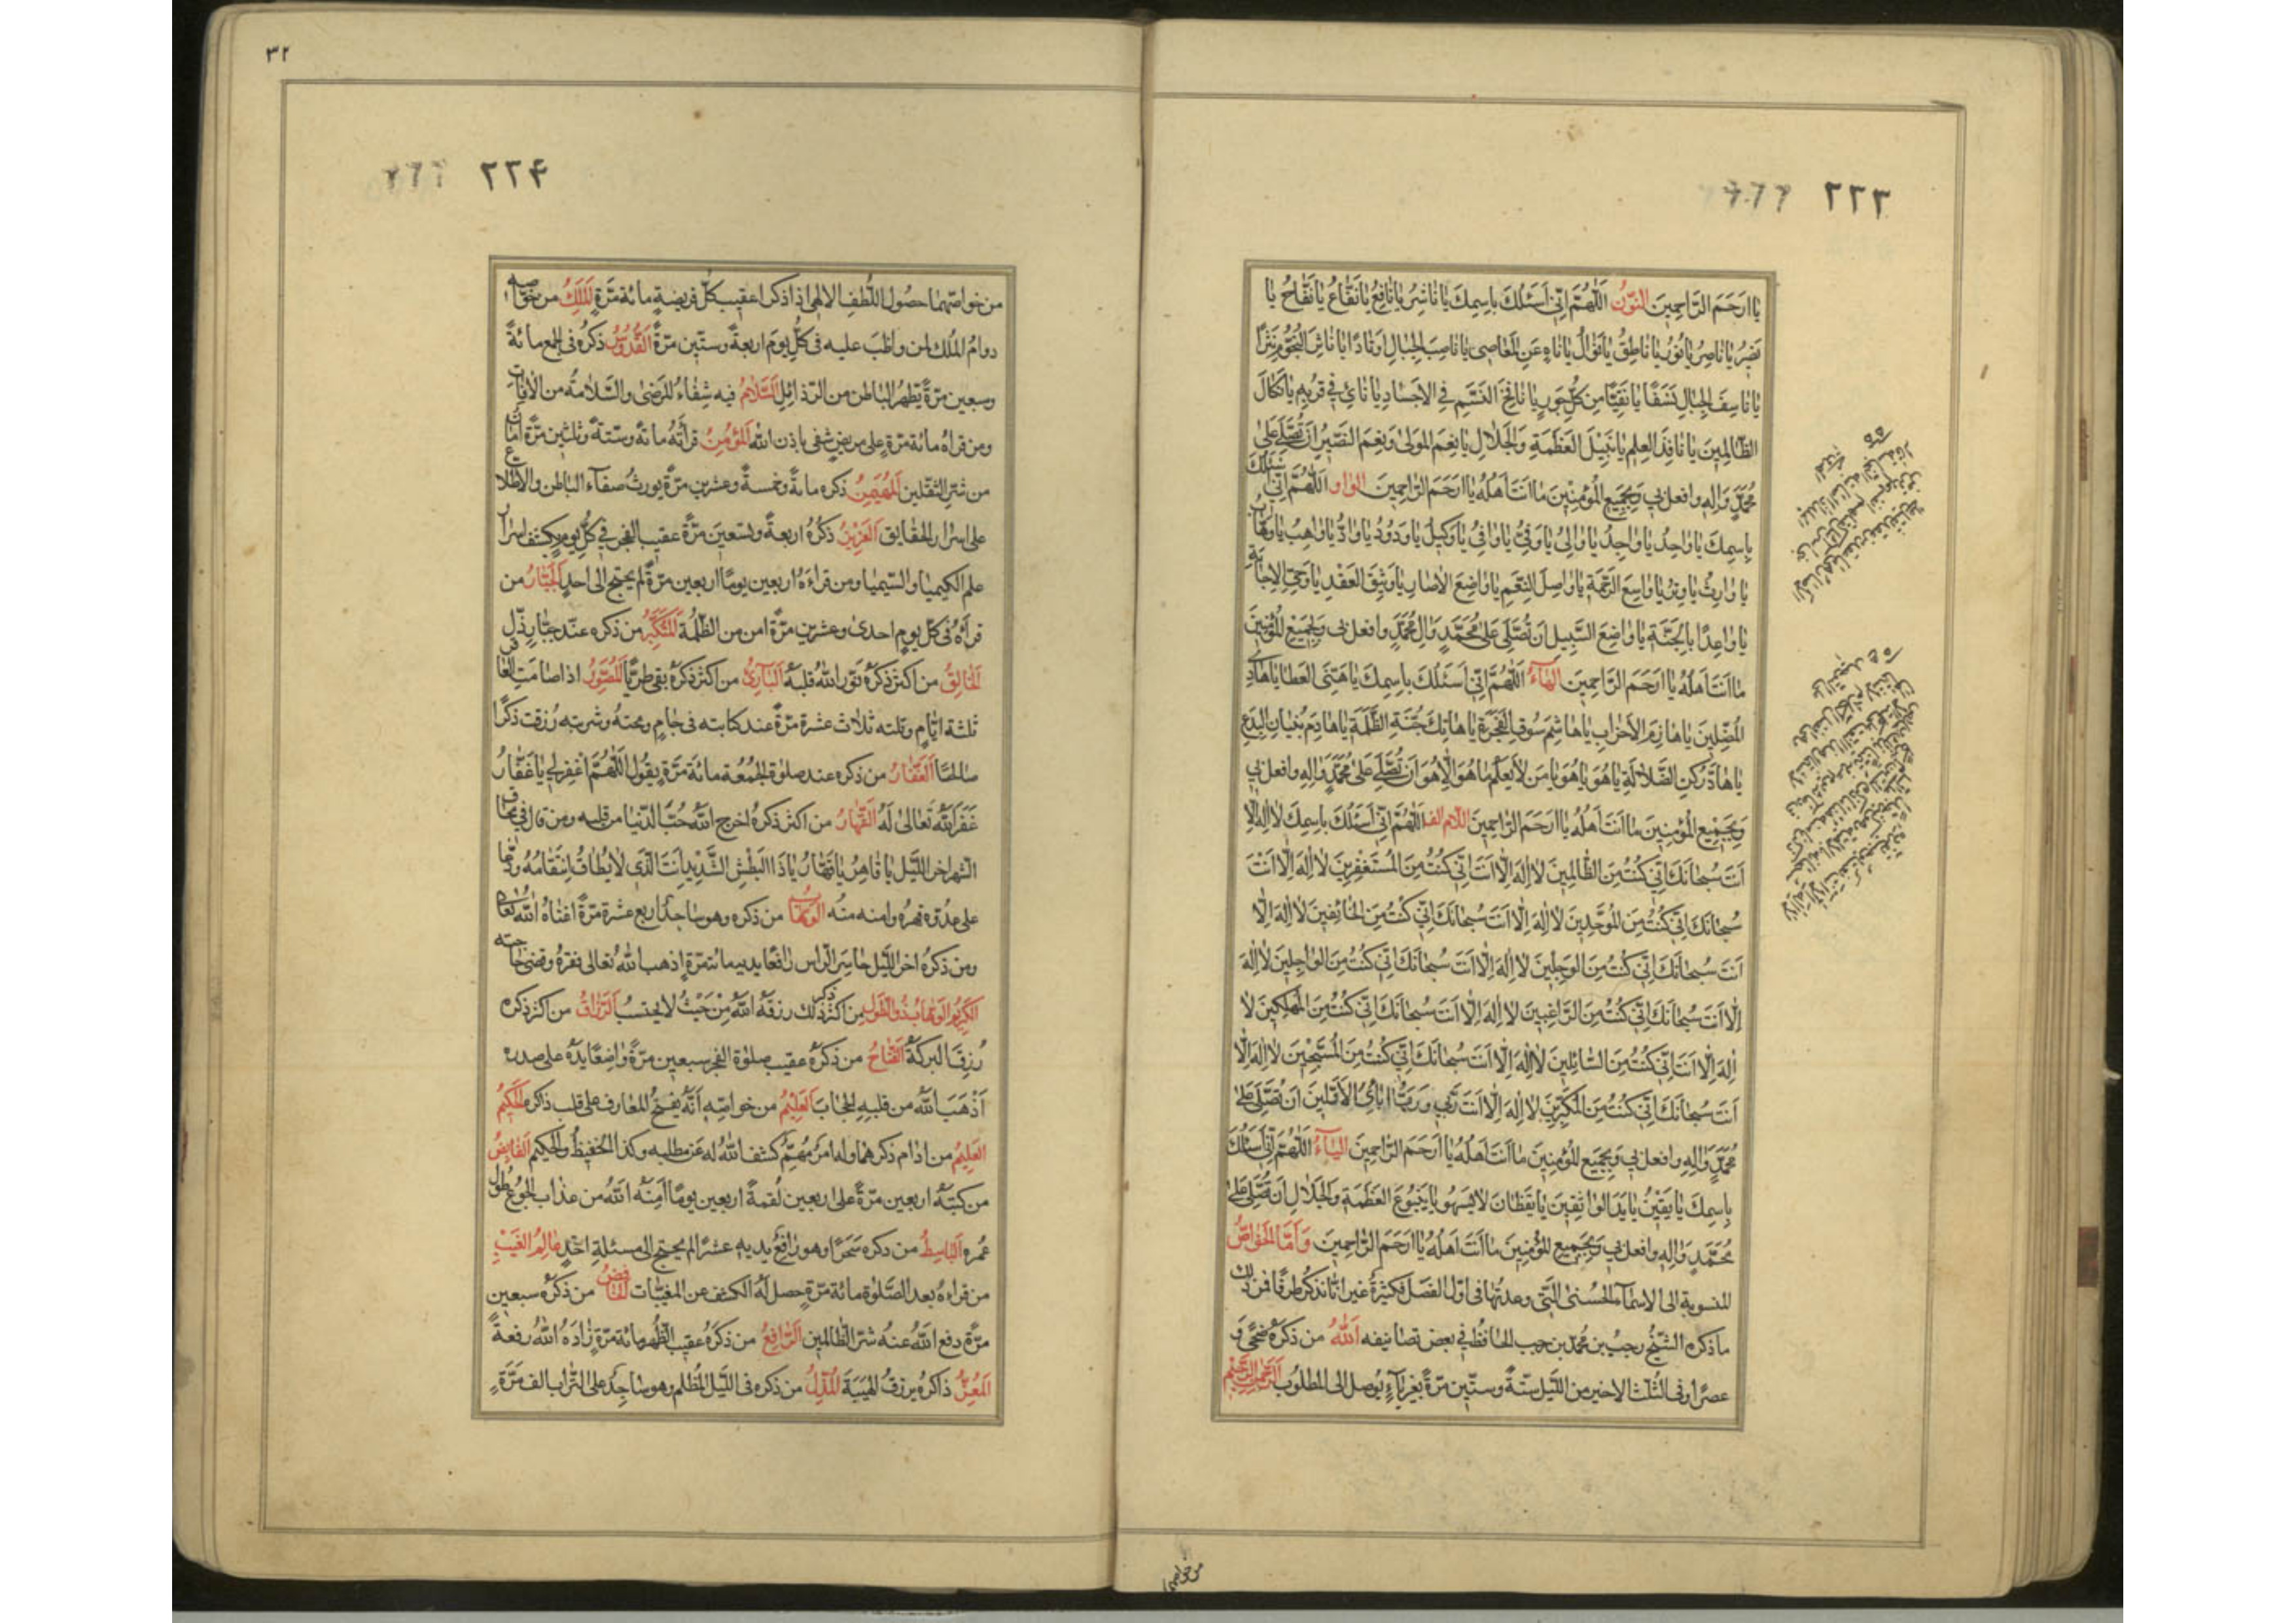 ٢٢٣
يا ارحم الراحمين النون اللهم اني اسئلك باسمك يا ناشر يا نافع يا نفاع يا نفاح يا
نصير يا ناصر يا نور يا ناطق يا نوال يا ناه عن المعاصي يا ناصب الجبال اوتادا يا ناثر النجوم نثرا
يا ناسف الجبال نسفا يا نقيا من كل جور يا نافخ النسم في الاجساد يا نائي في قربه يا نكال
الظالمين يا نافذ العلم يا نبيل العظمة والجلال يا نعم المولى ونعم النصير ان تصلي على
محمد واله وافعل بي وبجميع المؤمنين ما انت اهله يا ارحم الراحمين الواو اللهم اني اسئلك
باسمك يا واحد يا واجد يا والي يا وفي يا وافي يا وكيل يا ودود يا واد يا واهب يا وهاب
يا وارث يا وتر يا واسع الرحمة يا واصل النعم يا واضع الاصار يا وثيق العقد يا وحي الاجابة
يا واعدا بالجنة يا واضع السبيل ان تصلي على محمد وال محمد وافعل بي وبجميع المؤمنين
ما انت اهله يا ارحم الراحمين الهاء اللهم اني اسئلك باسمك يا هنئ العطا يا هادي
المضلين يا هازم الاحزاب يا هاشم سوق الفجرة يا هاتك جنة الظلمة يا هادم بنيان البدع
يا هاد ركن الضلالة يا هو يا هو يا من لا يعلم ما هو الا هو ان تصلي على محمد واله وافعل بي
وبجميع المؤمنين ما انت اهله يا ارحم الراحمين اللام الف اللهم اني اسئلك باسمك لا اله الا
انت سبحانك اني كنت من الظالمين لا اله الا انت اني كنت من المستغفرين لا اله الا انت
سبحانك اني كنت من الموحدين لا اله الا انت سبحانك اني كنت من الخائفين لا اله الا
انت سبحانك اني كنت من الوجلين لا اله الا انت سبحانك اني كنت من الواجلين لا اله
الا انت سبحانك اني كنت من الراغبين لا اله الا انت سبحانك اني كنت من المهلكين لا
اله الا انت اني كنت من السائلين لا اله الا انت سبحانك اني كنت من المسبحين لا اله الا
انت سبحانك اني كنت من المكبرين لا اله الا انت ربي ورب ابائي الاولين ان تصلي على
محمد واله وافعل بي وبجميع المؤمنين ما انت اهله يا ارحم الراحمين الياء اللهم اني اسئلك
باسمك يا يقين يا يد الواثقين يا يقظان لا يسهو يا ينبوع العظمة والجلال ان تصلي على
محمد واله وافعل بي وبجميع المؤمنين ما انت اهله يا ارحم الراحمين واما الخواص
المنسوبة الى الاسماء الحسنى التي وعدتها في اول الفصل فكثيرة غير انا نذكر طرفا فمن ذلك
ما ذكره الشيخ رجب بن محمد بن رجب الحافظ في بعض تصانيفه الله من ذكره ضحى و
عصرا وفي الثلث الاخير من الليل ستة وستين مرة بغير ياء يوصل الى المطلوب الرحمن الرحيم
من خواصهما
٣٢
٢٢٤
من خواصهما حصول اللطف الالهي اذا ذكرا عقيب كل فريضة مائة مرة الملك من خواصه
دوام الملك لمن واظب عليه في كل يوم اربعة وستين مرة القدوس ذكره في الجمع مائة
وسبعين مرة يطهر الباطن من الرذائل السلام فيه شفاء للمرضى والسلامة من الافات
ومن قراه مائة مرة على مريض شفي باذن الله المؤمن قرأته مائة وستة وثلثين مرة امان
من شر الثقلين المهيمن ذكره مائة وخمسة وعشرين مرة يورث صفاء الباطن والاطلاع
على اسرار الحقايق العزيز ذكره اربعة وتسعين مرة عقيب الفجر في كل يوم يكشف اسرار
علم الكيميا والسيميا ومن قراءه اربعين يوما اربعين مرة لم يحتج الى احد الجبار من
قرأه في كل يوم احدى وعشرين مرة امن من الظلمة المتكبر من ذكره عند جبار ذل
الخالق من اكثر ذكره نور الله قلبه البارئ من اكثر ذكره بقي طريا المصور اذا صامت العاقر
ثلثة ايام وتلته ثلاث عشرة مرة عند كتابته في جام ومحته وشربته رزقت ذكرا
صالحا الغفار من ذكره عند صلوة الجمعة مائة مرة يقول اللهم اغفر لي يا غفار
غفر الله تعالى له القهار من اكثر ذكره اخرج الله حب الدنيا من قلبه ومن قال في محاق
الشهر اخر الليل يا قاهر يا قهار يا ذا البطش الشديد انت الذي لا يطاق انتقامه ودعا
على عدوه قهره وامنه منه الوهاب من ذكره وهو ساجد اربع عشرة مرة اغناه الله تعالى
ومن ذكره اخر الليل حاسر الراس رافعا يديه مائة مرة اذهب الله تعالى فقره وقضى حاجته
الكريم الوهاب ذو الطول من اكثر ذكر ذلك رزقه الله من حيث لا يحتسب الرزاق من اكثر ذكره
رزق البركة الفتاح من ذكره عقيب صلوة الفجر سبعين مرة واضعا يده على صدره
اذهب الله من قلبه الحجاب العليم من خواصه انه يفتح المعارف على قلب ذاكره الحكيم
العليم من ادام ذكرهما وله امر مهم كشف الله له عن مطلبه وكذا الحفيظ والحكيم القابض
من كتبه اربعين مرة على اربعين لقمة اربعين يوما امنه الله من عذاب الجوع طول
عمره الباسط من ذكره سحرا وهو رافع يديه عشرا لم يحتج الى مسئلة احد عالم الغيب
من قراءه بعد الصلوة مائة مرة حصل له الكشف عن المغيبات الخافض من ذكره سبعين
مرة دفع الله عنه شر الظالمين الرافع من ذكره عقيب الظهر مائة مرة زاده الله رفعة
المعز ذاكره يرزق الهيبة المذل من ذكره في الليل المظلم وهو ساجد على التراب الف مرة